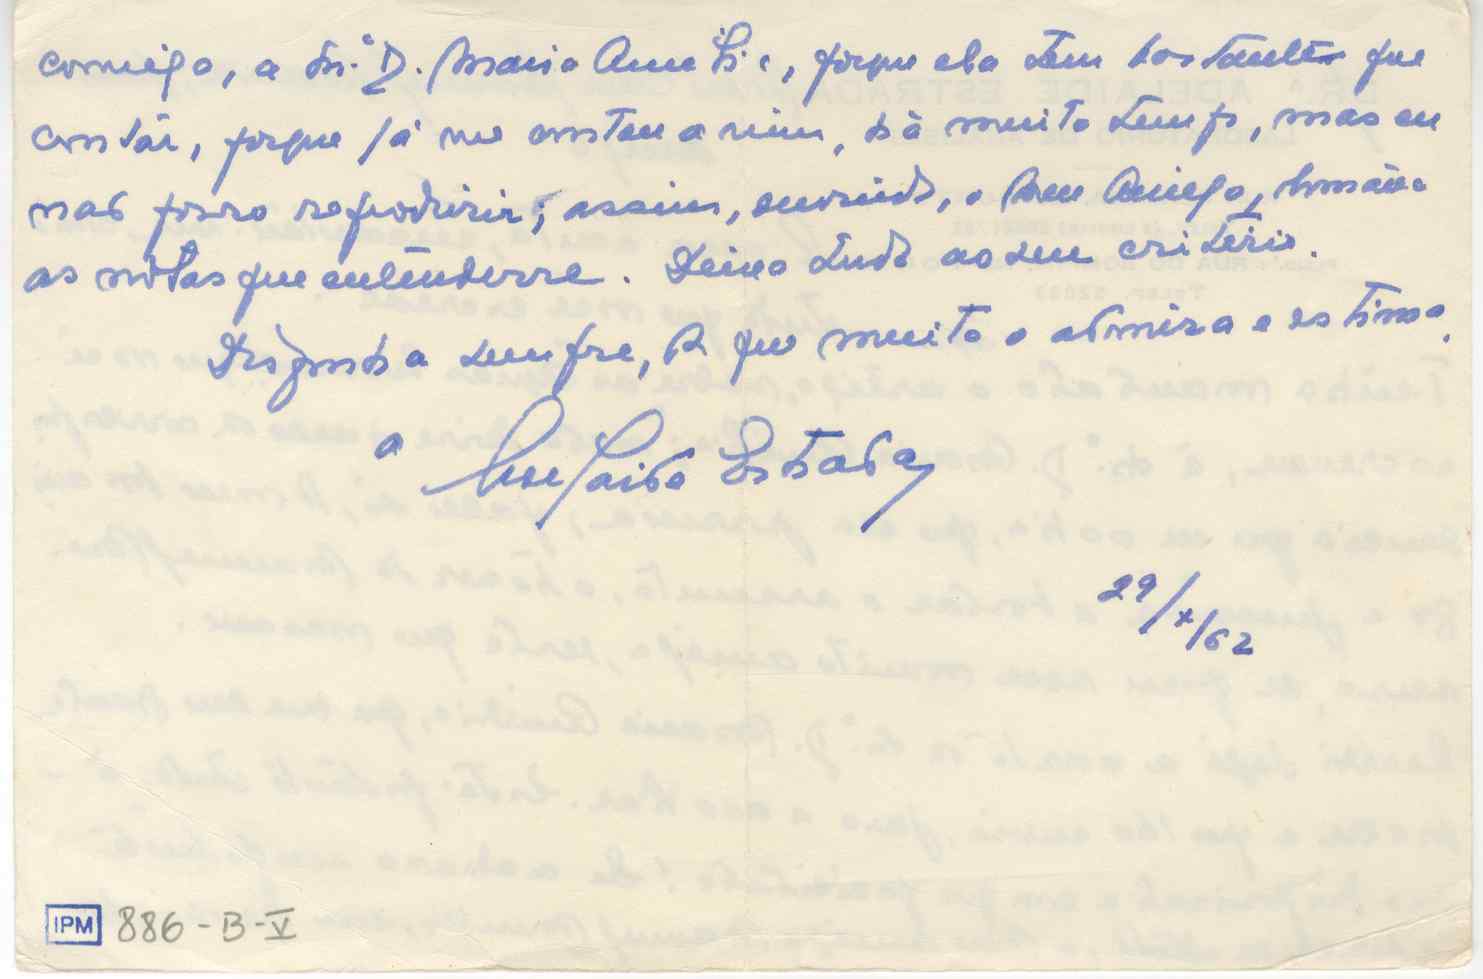 comigo, a Srª D. Maria Amélia, porque ela tem bastante que
contar, porque já me contou a mim, há muito tempo, mas eu
não posso reproduzir; assim, ouvindo, o meu Amigo, tomára
as nótas que entendesse. Deixo tudo ao seu critério.
Disponha sempre, da que muito o admira e estima,
a Adelaide Estrada
29/X/62
IPM 886-B-V